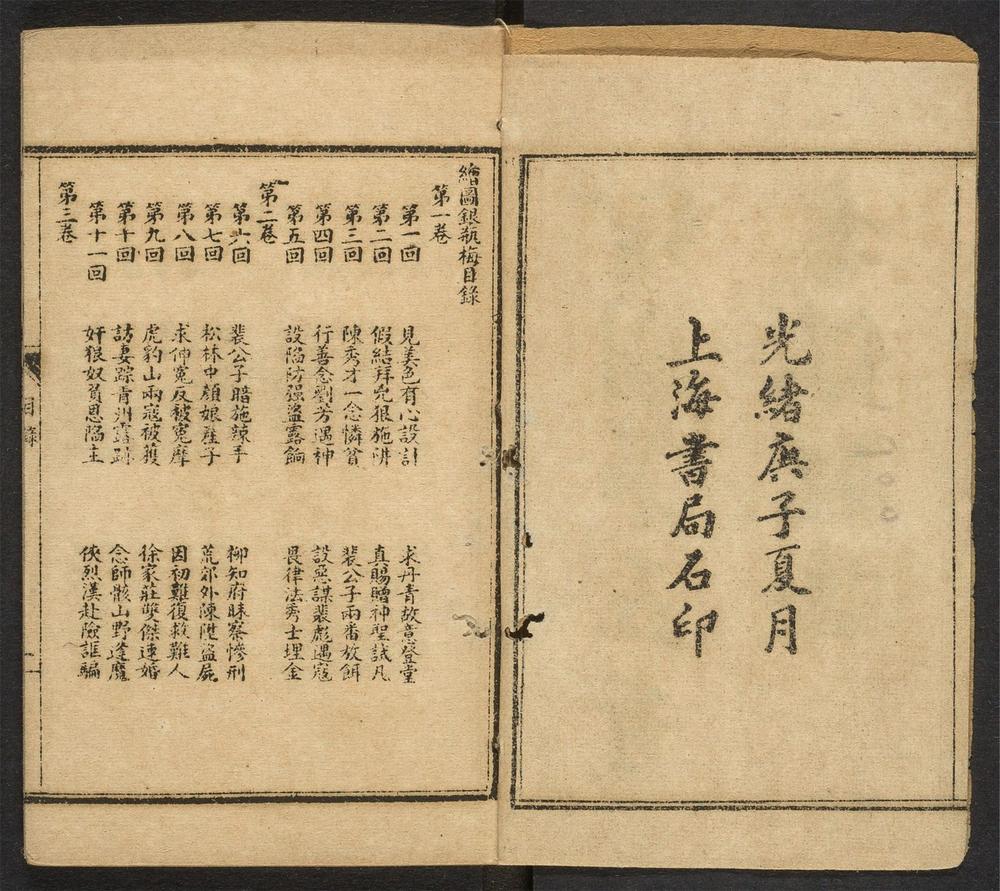 光緒庚子夏月
上海書局石印
繪圖銀瓶梅目錄
第一卷
第一回 見美色有心設計 求丹青故意登堂
第二回 假結拜兇狠施阱 真賜贈神聖試凡
第三回 陳秀才一念憐貧 裴公子兩番放餌
第四回 行善念劉芳遇神 設惡謀裴彪遇寇
第五回 設陷防强盜露餉 畏律法秀士埋金
第二卷
第六回 裴公子暗施辣手 柳知府昧察慘刑
第七回 松林中顏娘產子 荒郊外陳陞盜屍
第八回 求伸冤反被冤摩 因初難復救難人
第九回 虎豹山兩寇被獲 徐家莊雙傑連婚
第十回 訪妻踪青洲露跡 念師骸山野逢魔
第十一回 奸狠奴負恩陷主 俠烈漢赴險誆騙
第三卷
目錄
一